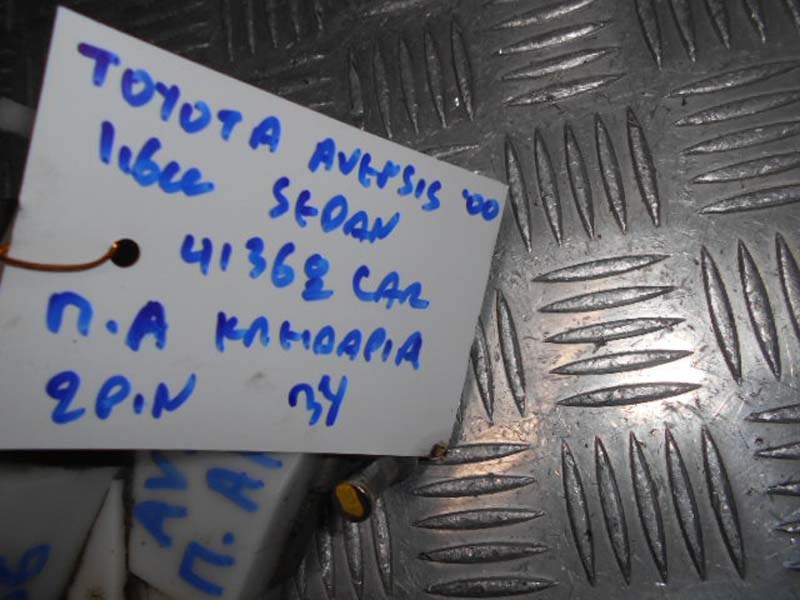 TOYOTA AVENSIS '00
1.6cc SEDAN
41368 CAR
Π.Α ΚΛΕΙΔΑΡΙΑ
2PIN 34
AV
Π. ΑΚ